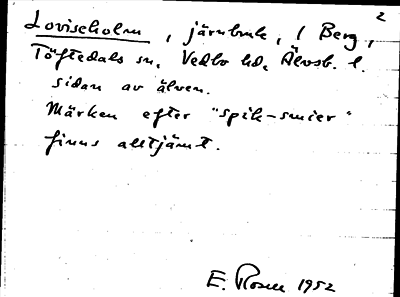 2
Loviseholm, järnbruk, / Berg,
Töftedals sn, Vedbo hd, Älvsb. l.
sidan av älven.
Märken efter "spik-smier"
finns alltjämt.
E. Rosell 1952